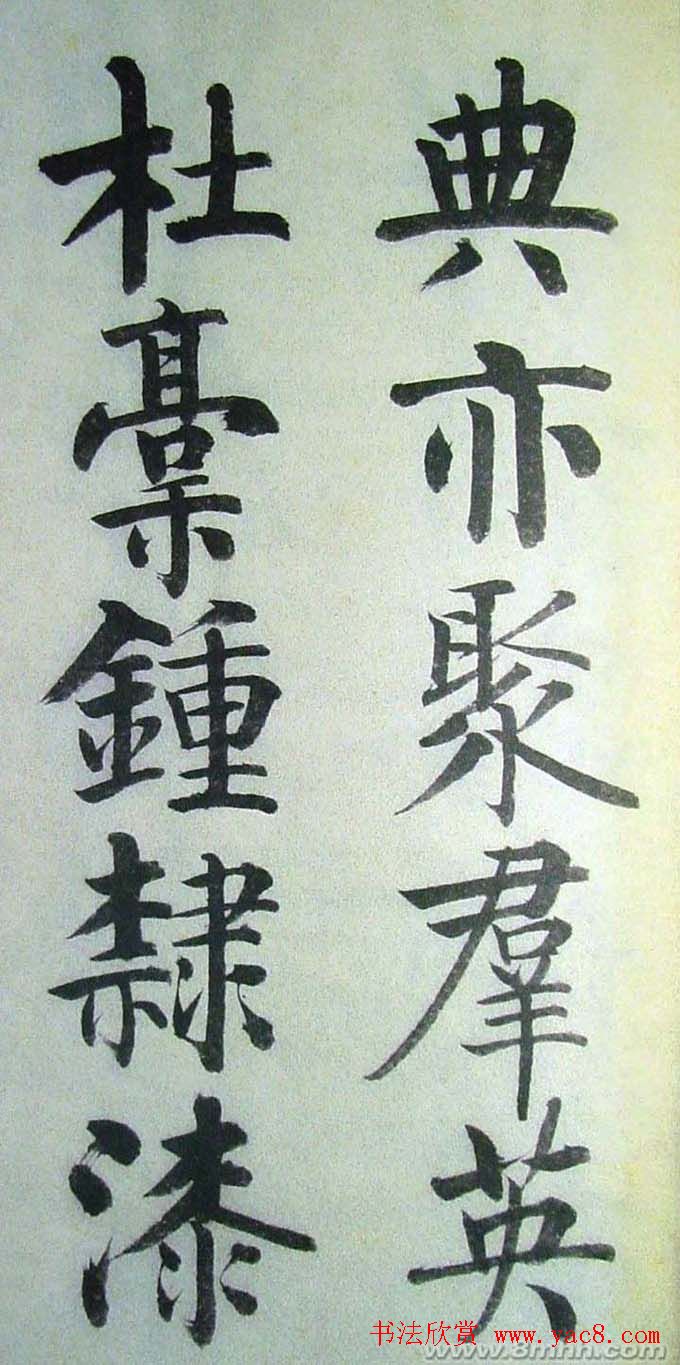 典亦聚羣英
杜稾鍾隸漆
书法欣赏 www.yac8.com
www.8mhh.com